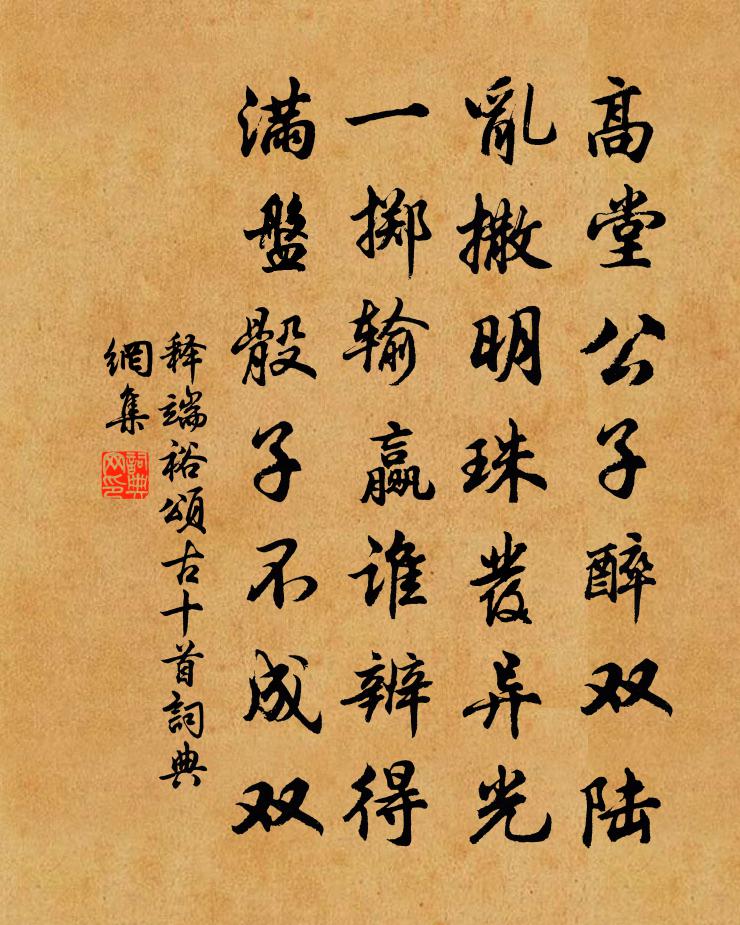 高堂公子醉双陆
亂撒明珠發异光
一掷输赢谁辨得
满盤骰子不成双
释端裕頌古十首詞典
網集
詞典
网印